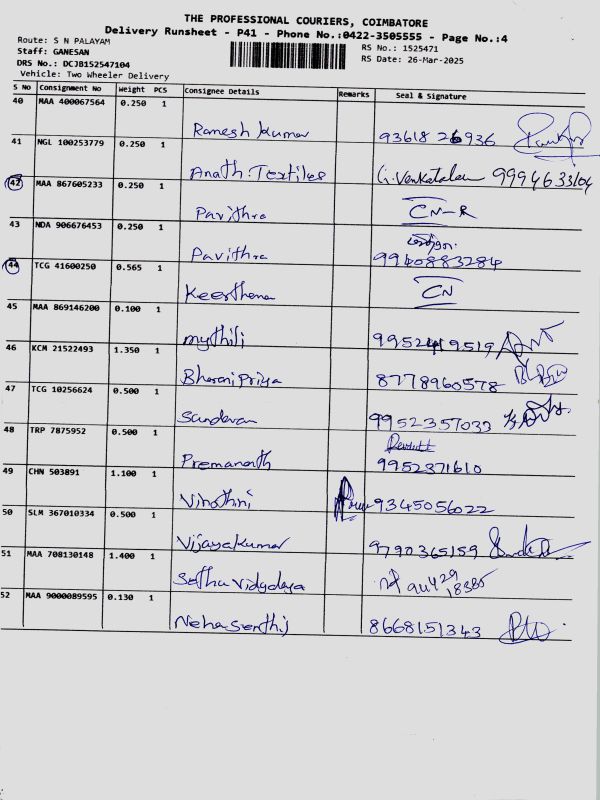 THE PROFESSIONAL COURIERS, COIMBATORE
Delivery Runsheet - P41 - Phone No.:0422-3505555 - Page No.:4
Route: S N PALAYAM
Staff: GANESAN
RS No.: 1525471
DRS No.: DCJB152547104
RS Date: 26-Mar-2025
Vehicle: Two Wheeler Delivery
S No Consignment No Weight PCS Consignee Details Remarks Seal & Signature
40 MAA 400067564 0.250 1
Ramesh Kumar 93618 26936
41 NGL 100253779 0.250 1
Anath. Textiles G. Venkatalam 9994633104
42 MAA 867605233 0.250 1
Pavithra CN-R
43 NDA 906676453 0.250 1
Pavithra 9940883284
44 TCG 41600250 0.565 1
Keerthana CN
45 MAA 869146200 0.100 1
mythili 9952419519
46 KCM 21522493 1.350 1
Bharani Priya 8778960578
47 TCG 10256624 0.500 1
Sundaran 9952357033
48 TRP 7875952 0.500 1
Premananth 9952371610
49 CHN 503891 1.100 1
Vinothini 9345056022
50 SLM 367010334 0.500 1
Vijayakumar 9790365159
51 MAA 708130148 1.400 1
Sathu Vidyalaya
52 MAA 9000089595 0.130 1
Neha Senthij 8668151343